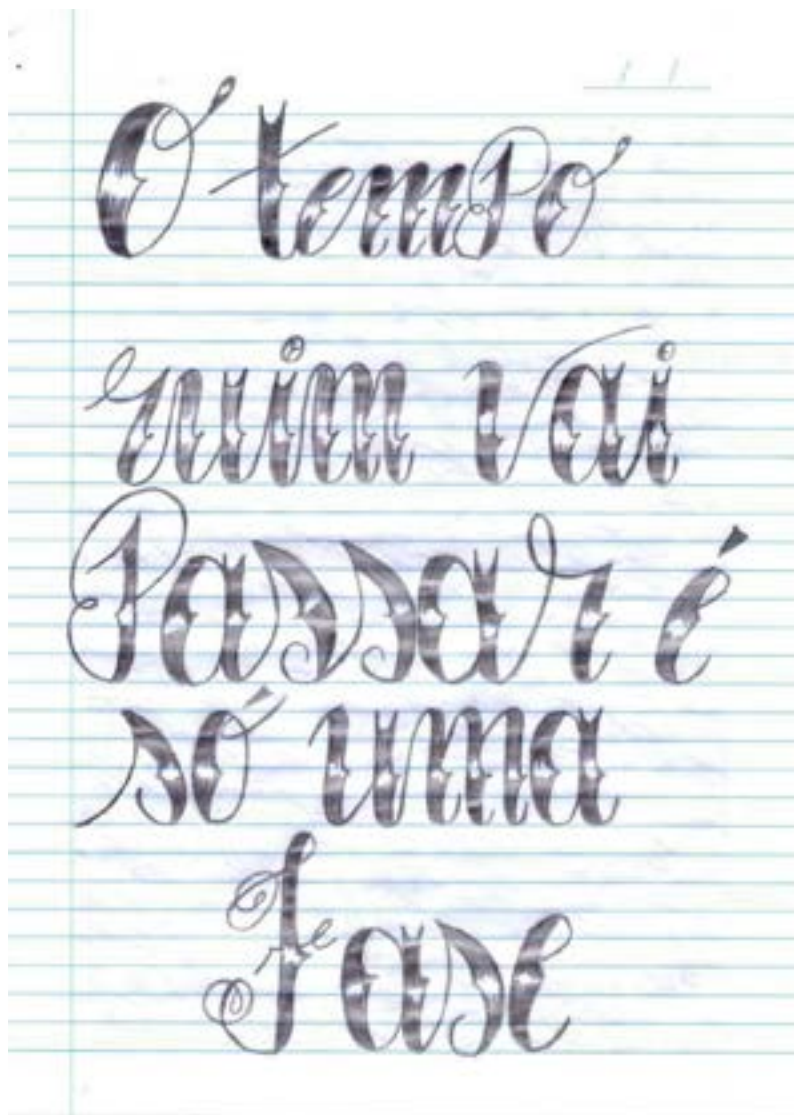 O tempo
ruim vai
Passar é
só uma
Fase